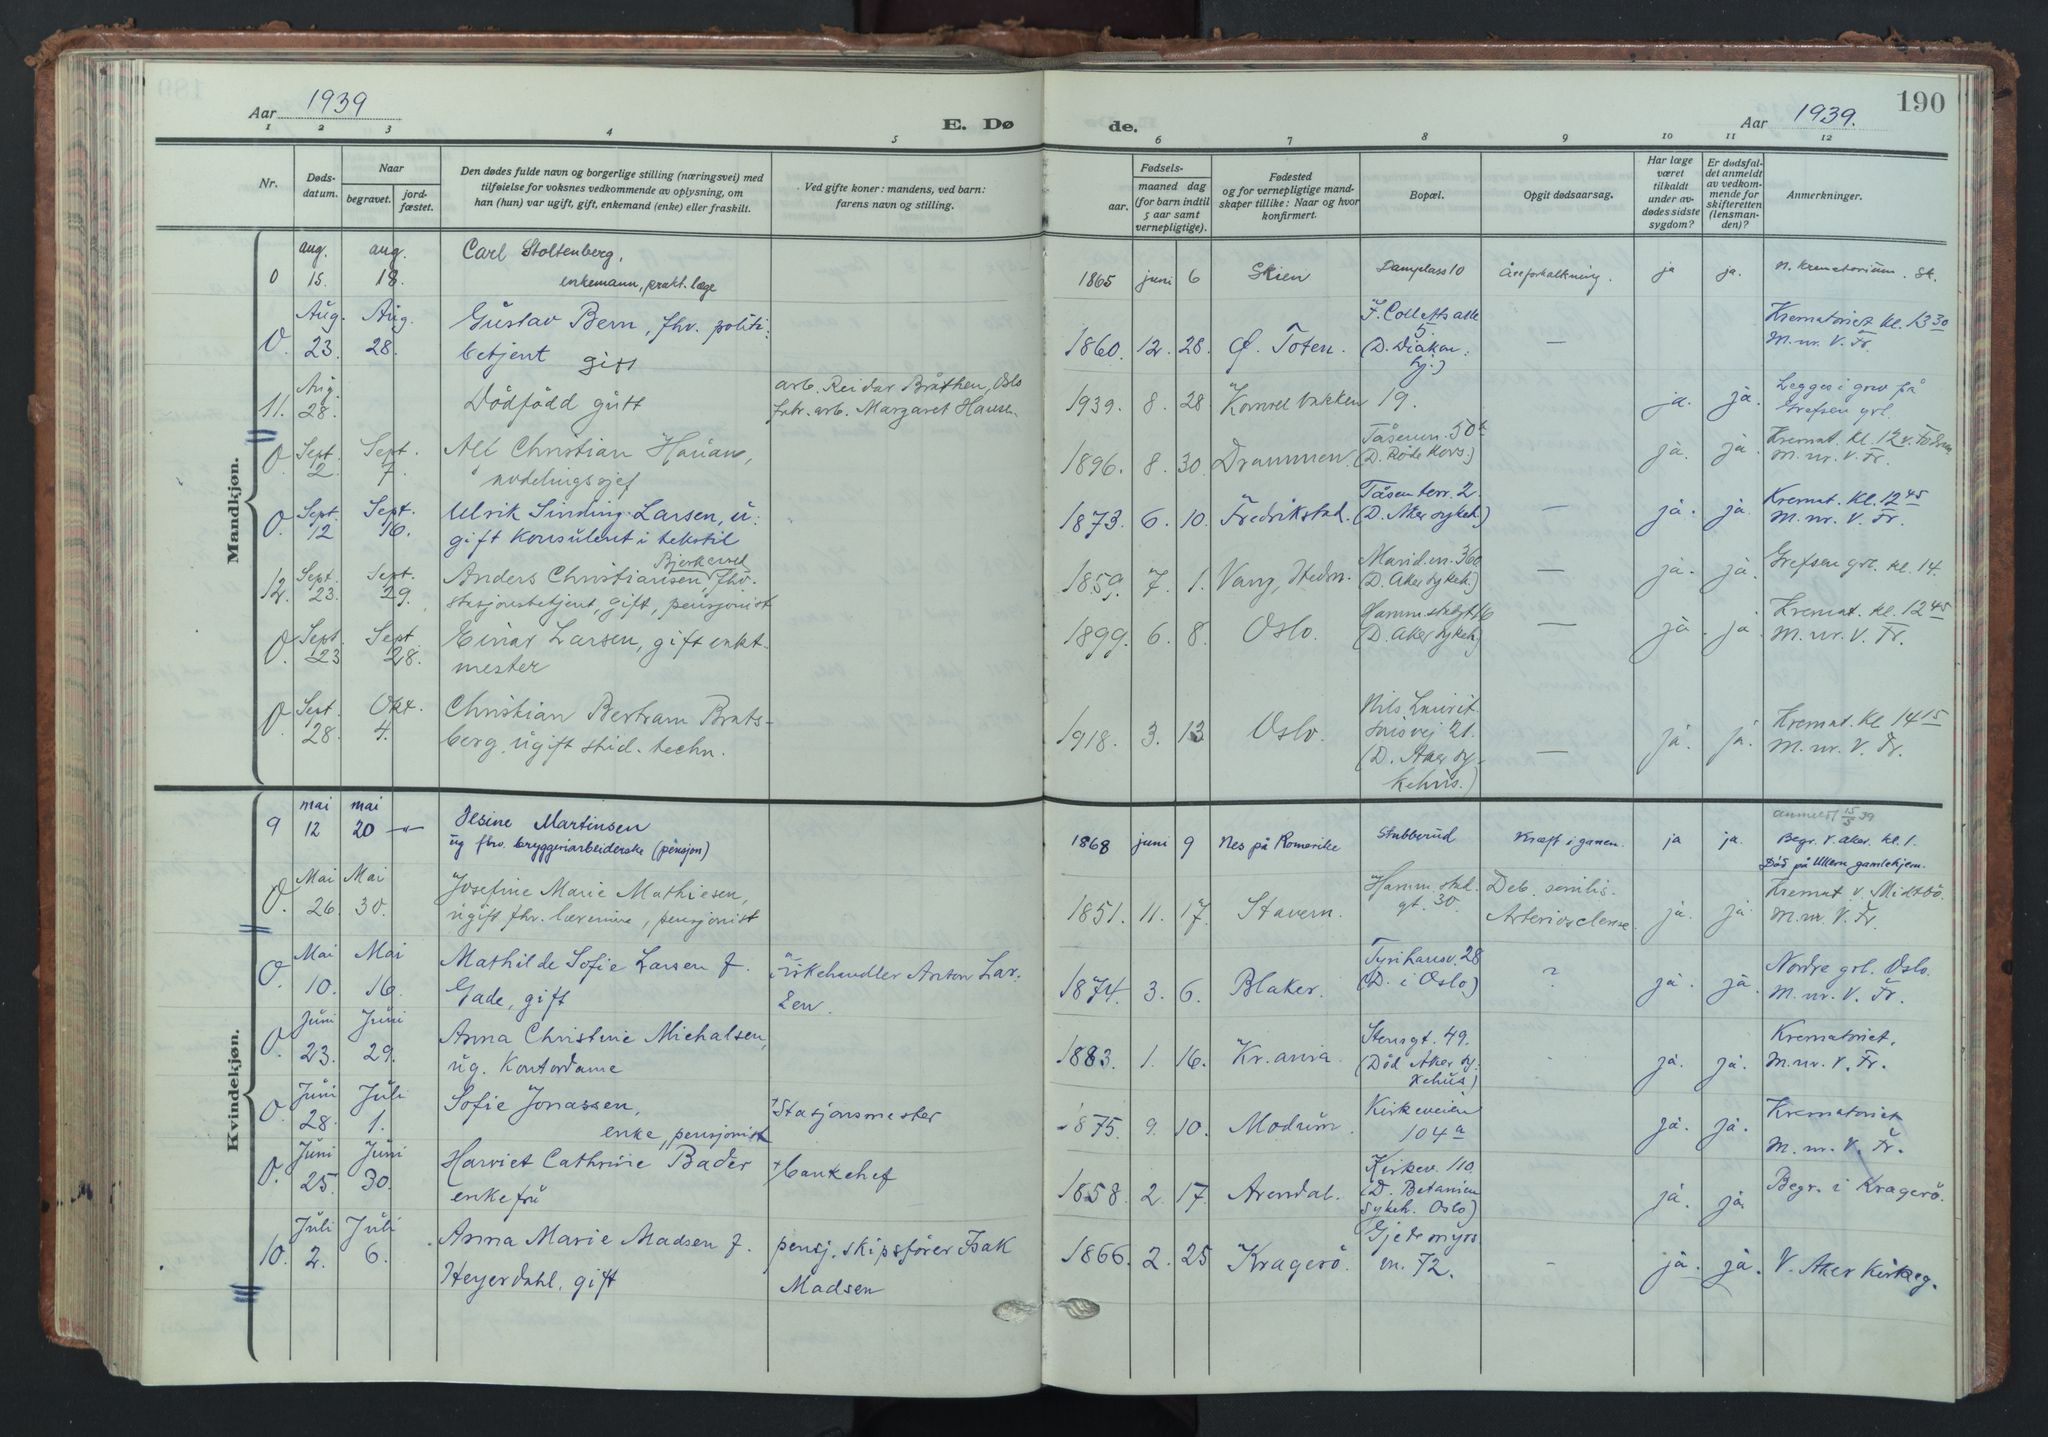 Aar 1939
E. Dø
de.
Aar 1939.
190
1 2 3 4 5 6 7 8 9 10 11 12
Nr.
Døds-
datum.
Naar
begravet.
jord-
fæstet.
Den dødes fulde navn og borgerlige stilling (næringsvei) med
tilføielse for voksnes vedkommende av oplysning, om
han (hun) var ugift, gift, enkemand (enke) eller fraskilt.
Ved gifte koner: mandens, ved barn:
farens navn og stilling.
Fødsels-
aar.
maaned dag
(for barn indtil
5 aar samt
vernepligtige).
Fødested
og for vernepligtige mand-
skaper tillike: Naar og hvor
konfirmert.
Bopæl.
Opgit dødsaarsag.
Har læge
været
tilkaldt
under av-
dødes sidste
sygdom?
Er dødsfal-
det anmeldt
av vedkom-
mende for
skifteretten
(lensman-
den)?
Anmerkninger.
Mandkjøn.
aug. aug. Carl Stoltenberg,
0 15. 18. enkemann, prakt. læge 1865 juni 6 Skien Damplass 10 Åreforkalkning. ja ja. n. krematorium. Sk.
Aug. Aug. Gustav Bern, fhv. politi- F. Colletts alle Krematoriet kl. 13 30
0. 23. 28. betjent gift 1860. 12. 28. Ø. Toten. 5. (D. Diakon. hj.) — M. nr. V. Fr.
Aug. arb. Reidar Bråthen, Oslo Legges i grav på
11. 28. Dödfödd gutt fabr. arb. Margaret Hansen 1939. 8. 28 Kornvei bakken 19. ja. ja. Grefsen grl.
Sept. Sept. Alf Christian Tåsenvn. 50 Kremat. kl. 12
0. 2. 7. avdelingssjef 1896. 8. 30. Drammen (D. Röde Kors.) ja. ja. M. nr. V. Fr.
Sept. Sept. Ulrik Sinding-Larsen, u- Tåsen terr. 2. Kremat. kl. 12 45
0. 12 16. gift konsulent i tekstil 1873. 6. 10. Fredrikstad. (D. Aker sykeh.) — ja. ja. M. nr. V. Fr.
Bjerkevel
Sept. Sept. Anders Christiansen, fhv. Marid. vn. 360
12. 23. 29. stasjonsbetjent, gift, pensjonist 1859. 7. 1. Vang, Hedm. (D. Aker sykeh.) — ja. ja. Grefsen grl. kl. 14.
Sept. Sept Einar Larsen, gift Hamm. stadgt 16 Kremat. kl. 12 45
0. 23 28. mester 1899. 6. 8. Oslo. (D. Aker sykeh.) — ja. ja. M. nr. V. Fr.
Sept. Okt. Christian Bertram Brats- Nils Kremat. kl. 14 15
0. 28. 4. berg, ugift stud. techn. 1918. 3. 13 Oslo. vej 21. (D. Aker sy- kehus.) — ja. ja. M. nr. V. Fr.
Kvindekjøn.
mai mai Jesine Martinsen anmeldt 15/5 39
9 12 20 —"— ug fhv. bryggeriarbeiderske (pensjon) 1868 juni 9 Nes på Romerike Stubberud Kræft i ganen. ja ja. Begr. V. Aker. kl. 1.
Död på Ullern gamlehjem.
Mai Mai Josefine Marie Mathiesen, Hamm. stad. Deb. senilis. Kremat. v. Midtbö.
0. 26. 30. ugift fhv. lærerinne, pensjonist 1851. 11. 17. Stavern. gt. 30. Arteriosclerose ja. ja. M. nr. V. Fr.
Mai Mai Mathilde Sofie Larsen f. handler Anton Lar- Tyrihansv. 28 Nordre grl. Oslo.
0. 10. 16. Gade, gift sen. 1874. 3. 6. Blaker. (D. i Oslo) ? ja. ja. M. nr. V. Fr.
Juni Juni Anna Christine Michalsen, Stensgt. 49. Krematoriet.
0. 23. 29. ug. Kontordame 1883. 1. 16. Kr.ania (Död Aker sy- kehus) ja. ja. M. nr. V. Fr.
Juni Juli Sofie Jonassen, Stasjonsmester Kirkeveien Krematoriet
0. 28. 1. enke, pensjonist 1875. 9. 10. Modum. 104 a ja. ja. M. nr. V. Fr.
Juni Juni Harriet Cathrine Bader bankchef Kirkev. 110.
0. 25. 30. enkefru 1858. 2. 17. Arendal. (D. Betanien sykeh. Oslo) ja. ja. Begr. i Kragerö.
Juli Juli Anna Marie Madsen f. pensj. skipsförer Isak Gjetemyrs
10. 2. 6. Heyerdahl, gift Madsen 1866. 2. 25 Kragerö. vn. 72. - ja. ja. V. Aker Kirkeg.